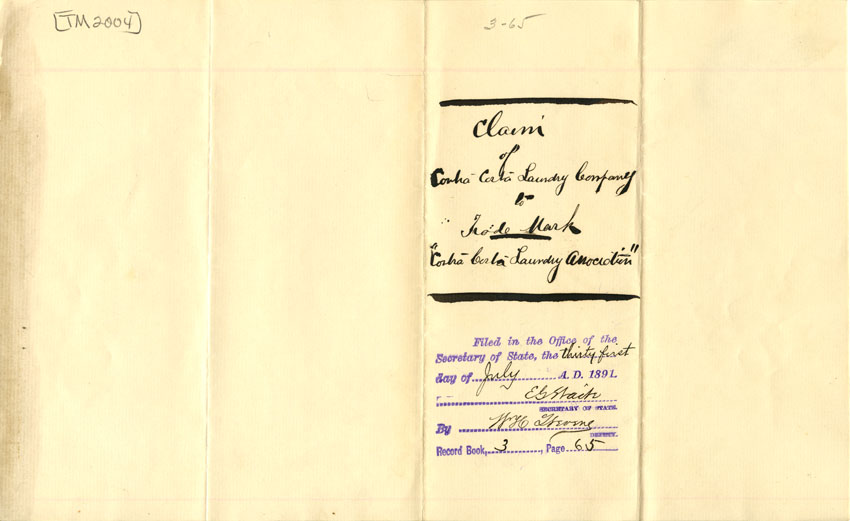 [TM2004]
3-65
Claim
of
Contra Costa Laundry Company
to
Trade Mark
"Contra Costa Laundry Association"
Filed in the Office of the
Secretary of State, the thirty first
day of July A. D. 1891.
E G Waite
SECRETARY OF STATE.
By W H
DEPUTY.
Record Book, 3, Page 65